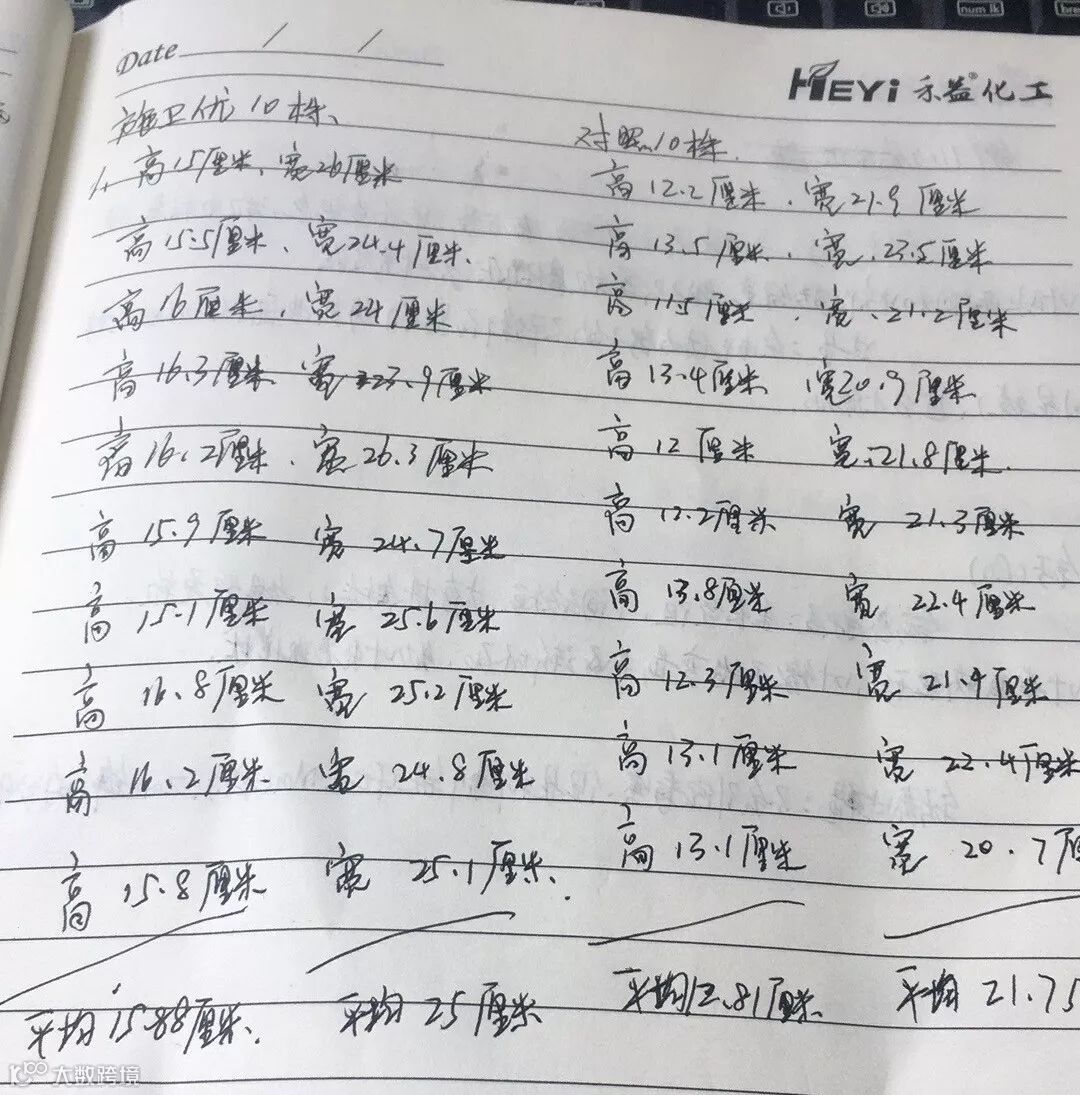 Date / /
HEYi 禾益化工
施卫优10株、
对照10株.
1. 高15厘米、宽26厘米
高12.2厘米、宽21.9厘米
高15.5厘米、宽24.4厘米.
高13.5厘米、宽23.5厘米
高16厘米、宽24厘米
高11.5厘米、宽21.2厘米
高16.3厘米 宽23.9厘米
高13.4厘米 宽20.9厘米
高16.2厘米、宽26.3厘米
高12厘米 宽21.8厘米.
高15.9厘米 宽24.7厘米
高12.2厘米 宽21.3厘米
高15.1厘米 宽25.6厘米
高13.8厘米 宽22.4厘米
高16.8厘米 宽25.2厘米
高12.3厘米 宽21.4厘米
高16.2厘米 宽24.8厘米
高13.1厘米 宽22.4厘米
高15.8厘米 宽25.1厘米.
高13.1厘米 宽20.7厘
平均15.88厘米.
平均25厘米
平均12.81厘米.
平均21.75
大数跨境
num lk